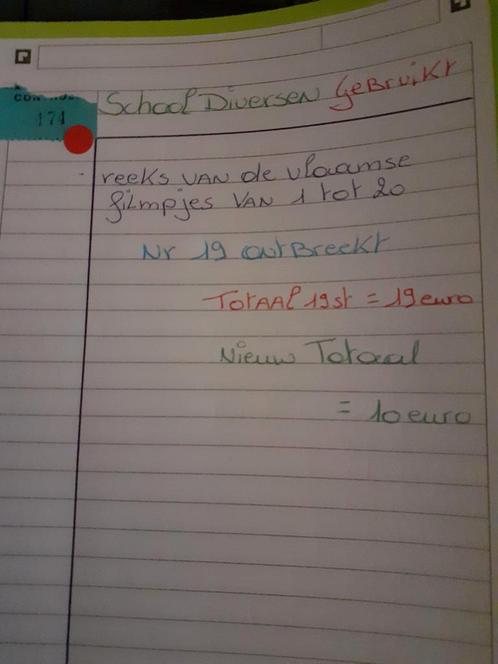 174
School Diversen Gebruikt
reeks van de vlaamse
filmpjes van 1 tot 20
Nr 19 ontbreekt
Totaal 19 st = 19 euro
Nieuw Totaal
= 10 euro